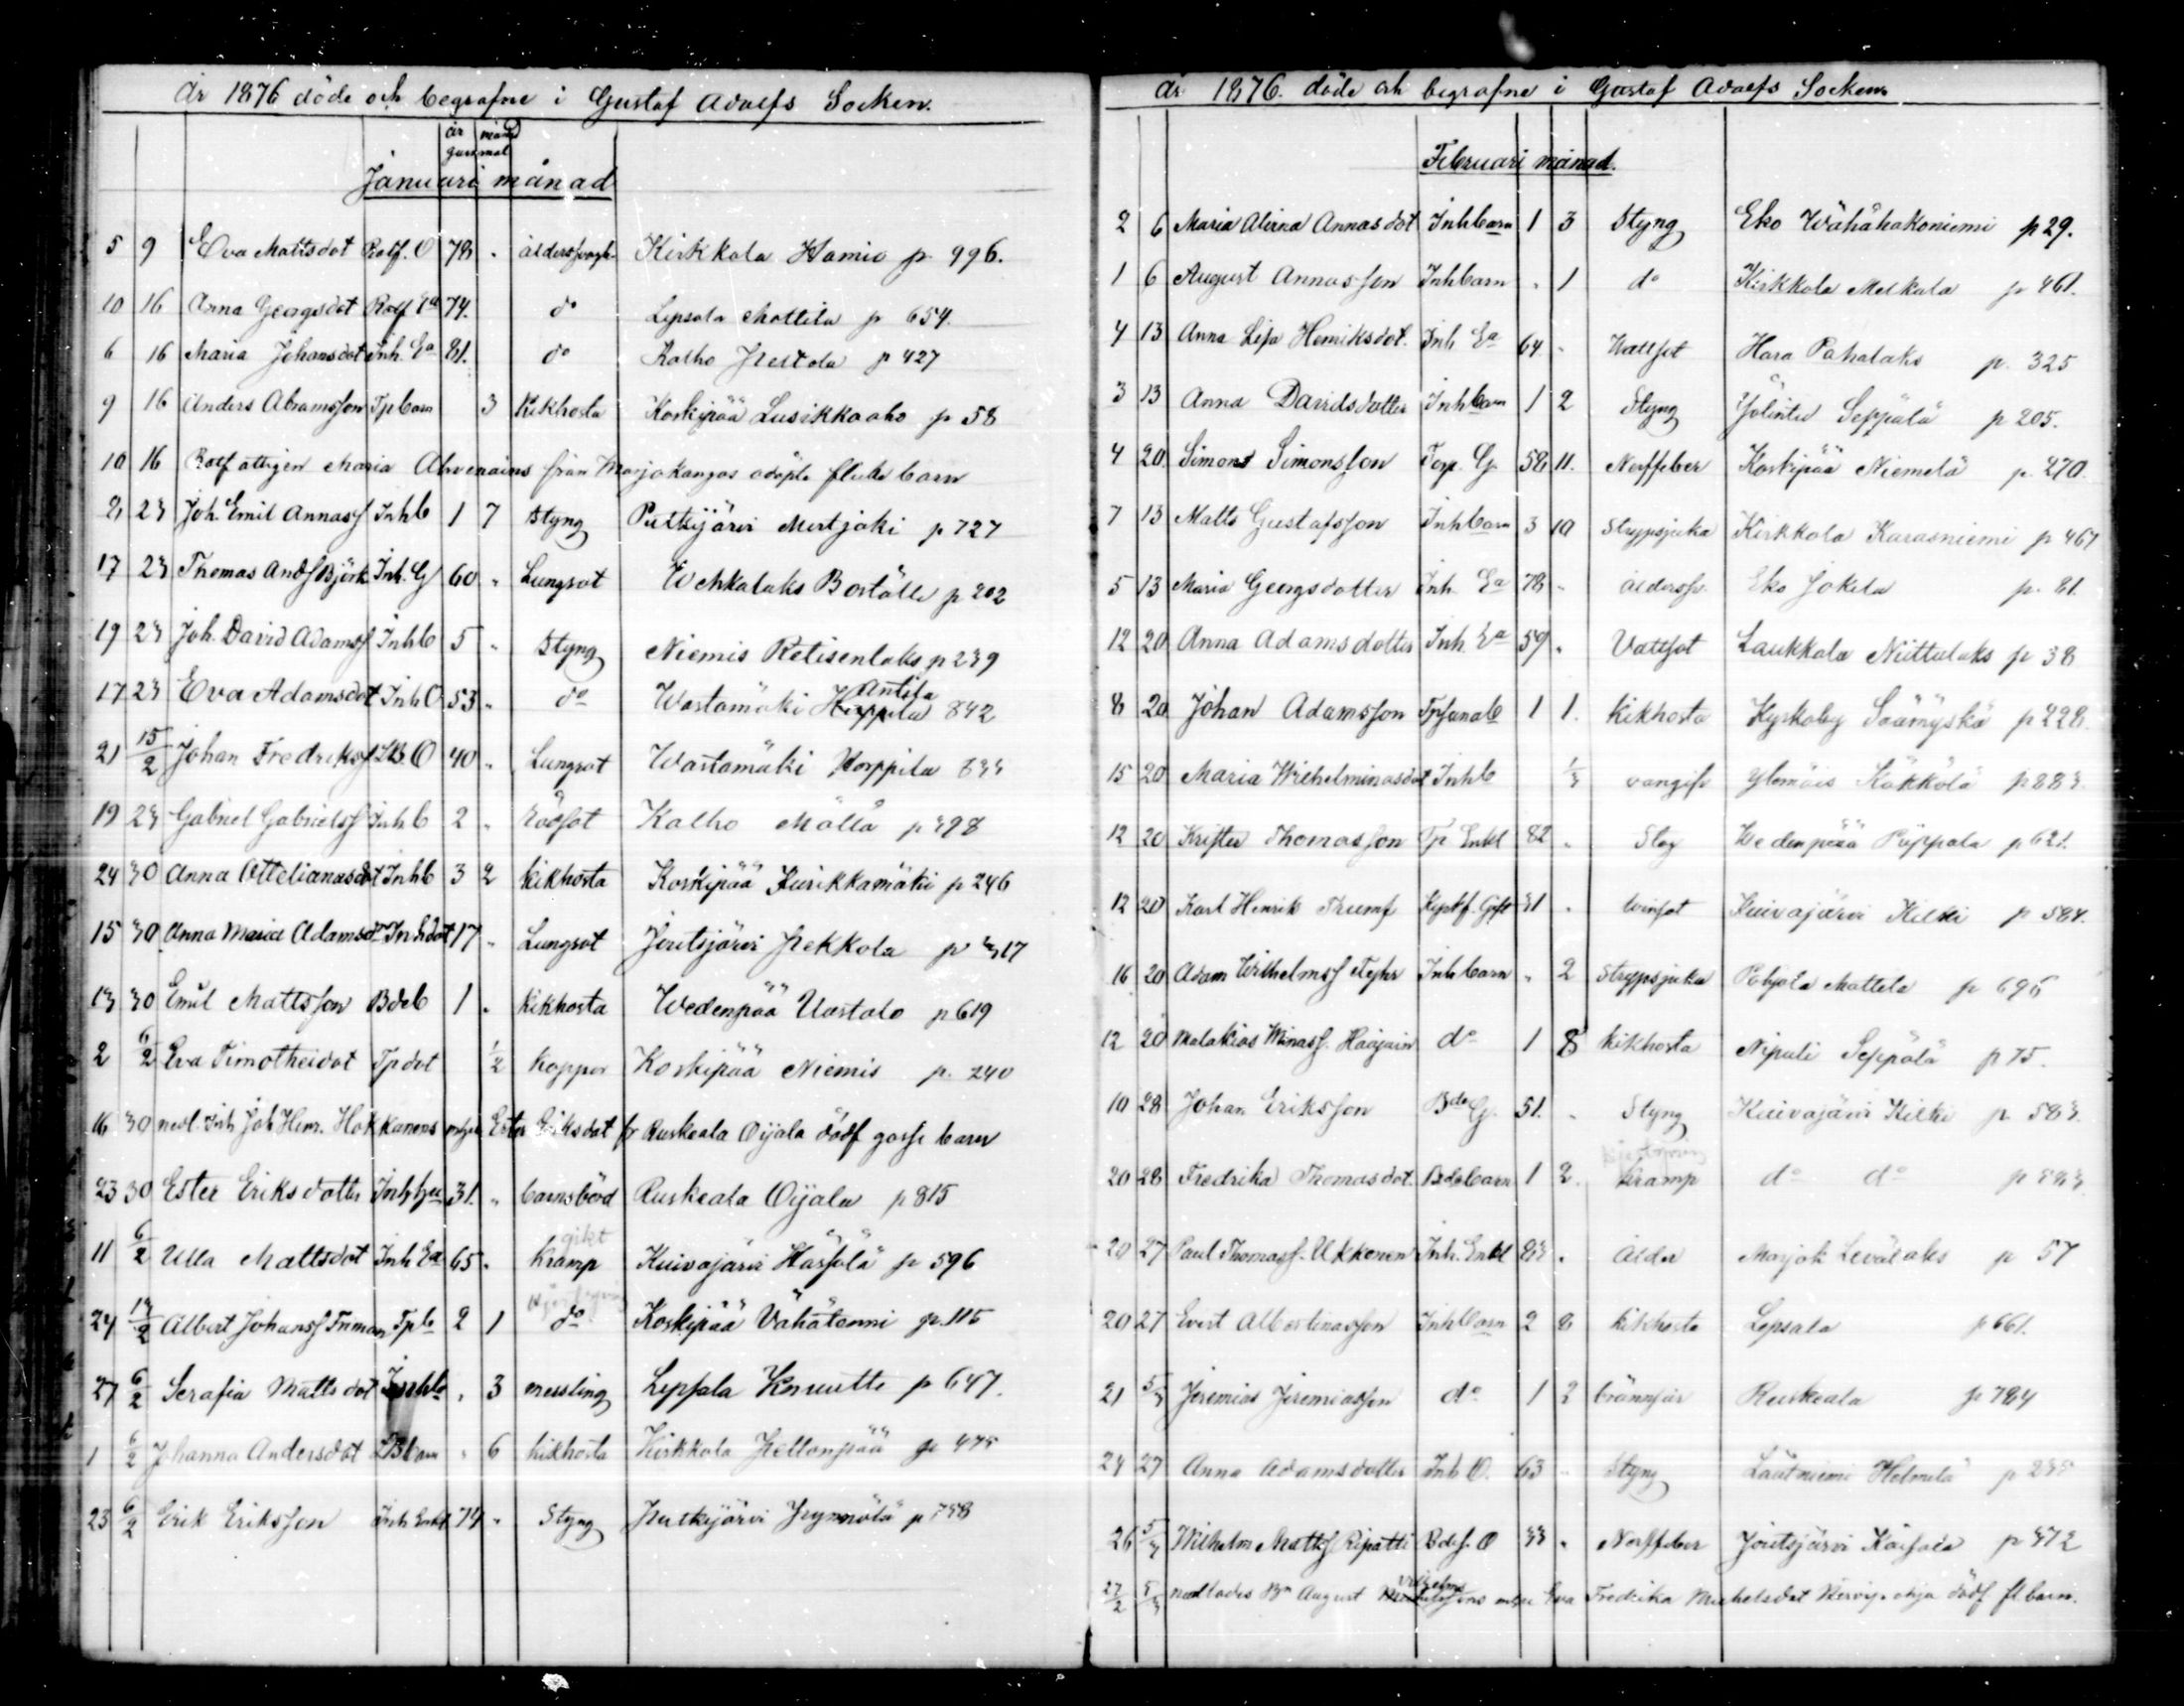 år 1876 döde och begrafne i Gustaf Adolfs Socken.
år månad
gammal
Januari månad
5 9 Eva Mattsdot Rotf. O 78 " åldersswagh. Kirkkola Hamio p. 996.
10 16 Anna Georgsdot Rotf Ea 74. do Lepsala Mattila p 654.
6 16 Maria Johansdot Inh. Ea 81. do Kalho p 427
9 16 Anders Abramsson Tp barn 3 Kikhosta Koskipää Lusikkaaho p 58
10 16 Rotf Maria från Marjokangas barn
2 23 Joh. Emil Annass Inhb 1 7 Styng Putkijärvi p 727
17 23 Thomas Ands Björk Inh. G 60 " Lungsot Wehkalaks p 202
19 23 Joh. David Adamss Inhb 5 " Styng Niemis p 239
17 23 Eva Adamsdot Inh O 53 " do Wastamäki Antila 842
21 15/2 Johan Fredrikss O 40 " Lungsot Wastamäki Horppila 833
19 23 Gabriel Gabrielss Inhb 2 " Rödsot Kalho Mällä p 398
24 30 Anna Ottelianasdot Inhb 3 2 kikhosta Koskipää Kurikkamäki p 246
15 30 Anna Maria Adamsdot Inh dot 17 " Lungsot Joutsjärvi Pekkola p 317
13 30 Emil Mattsson Bdeb 1 " kikhosta Wedenpää Uustalo p 619
2 6/2 Eva Timotheidot Tpdot 1/2 koppor Koskipää Niemis p. 240
16 30 nedl. Inh Joh Henr. Hokkanens Ester Eriksdot fr Ruskeala Oijala dödf gosse barn
23 30 Ester Eriksdotter Inh hu 31. " barnsbörd Ruskeala Oijala p 815
gikt
11 6/2 Ulla Mattsdot Inh Ea 65 " kramp Kuivajärvi p 596
24 13/2 Albert Johanss Friman Tpb 2 1 do Koskipää Vähätenni p. 115
27 6/2 Serafia Mattsdot Inhb " 3 messling Lepsala Knuutti p 647.
1 6/2 Johanna Andersdot " 6 kikhosta Kirkkola Peltonpää p 475
23 6/2 Erik Eriksson Inh Enkl 74 " Styng Putkijärvi p 758
år 1876. döde och begrafne i Gustaf Adolfs Socken
Februari månad.
2 6 Maria Alina Annasdot Inhbarn 1 3 Styng Eko Wähähakoniemi p 29.
1 6 August Annasson Inhbarn " 1 do Kirkkola Melkala p 461.
4 13 Anna Lisa Henriksdot. Inh Ea 64 " Wattsot Hara Pahalaks p. 325
3 13 Anna Davidsdotter Inhbarn 1 2 Styng Jölintu Seppälä p 205.
4 20 Simon Simonsson Torp. G. 58 11. Nerffeber Koskipää Niemelä p. 270.
7 13 Matts Gustafsson Inhbarn 3 10 Strypsjuka Kirkkola Karasniemi p 467
5 13 Maria Georgsdotter Inh. Ea 78 " åldersv. Eko Jokela p. 81.
12 20 Anna Adamsdotter Inh. Ea 59 " Vattsot Laukkala Niittulaks p 38
8 20 Johan Adamsson 1 1. kikhosta Kyrkoby Säämyskä p 228.
15 20 Maria Wilhelminasdot Inhb 1/3 Ylemäis Käkkölä p 883
12 20 Krister Thomasson Tp Enkl 82 " Slag Wedenpää Piippala p 621.
12 20 Karl Henrik Trumf Gift 31 " Kuivajärvi Kilkki p 584.
16 20 Adam Wilhelmss Tejhr Inhbarn " 2 Strypsjuka Pohjola Mattila p 696
12 20 Malakias Minass. Haajain do 1 8 kikhosta Nipuli Seppälä p 75.
10 28 Johan Eriksson Bde G. 51. " Styng Kuivajärvi Kilkki p. 583.
20 28 Fredrika Thomasdot Bdebarn 1 2. kramp do do p 583
20 27 Paul Thomass. Ukkonen Inh. Enkl 83 " Ålder Marjok Levälaks p 57
20 27 Evert Albertinasson Inhbarn 2 8 kikhosta Lepsala p 661.
21 5/3 Jeremias Jeremiasson do 1 2 brännsår Ruskeala p 784
24 27 Anna Adamsdotter Inh O. 63 " Styng Läätniemi Holmilä p 235
26 5/3 Wilhelm Matts Ripatti Bdes. O 33 " Nerffeber Joutsjärvi p 372
Vilhelms
27/2 5/3 August Eva Fredrika Michelsdot dödf fl barn.